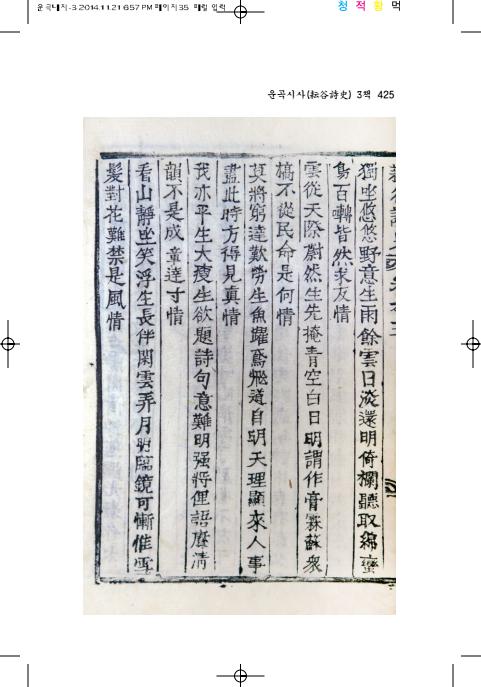 운곡내지-3 2014.11.21 6:57 PM 페이지35 메릴 입력
청 적 황 먹
운곡시사(耘谷詩史) 3책 425
獨坐悠悠野意生雨餘雲日淡還明倚欄聽取綿蠻
鳥百囀皆然求友情
雲從天際蔚然生先掩青空白日明謂作膏霖蘇衆
槁不從民命是何情
莫將窮達歎勞生魚躍鳶飛道自明天理顯來人事
盡此時方得見真情
我亦平生大瘦生欲題詩句意難明强將俚語賡清
韻不是成章達寸情
看山靜坐笑浮生長伴閑雲弄月明臨鏡可慚催雪
髮對花難禁是風情